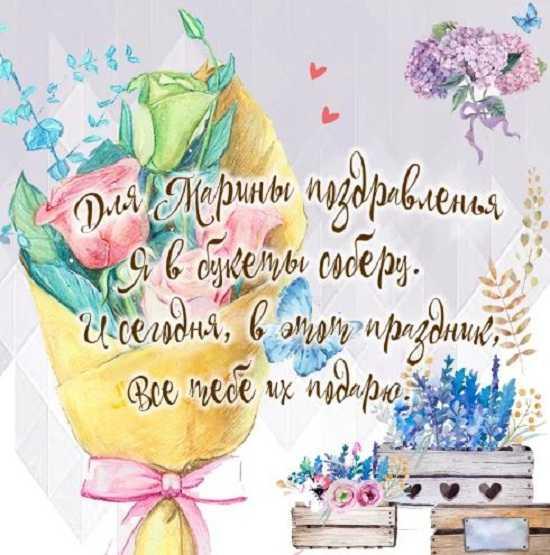 Для Марины поздравленья
Я в букеты соберу.
И сегодня, в этот праздник,
Все тебе их подарю.